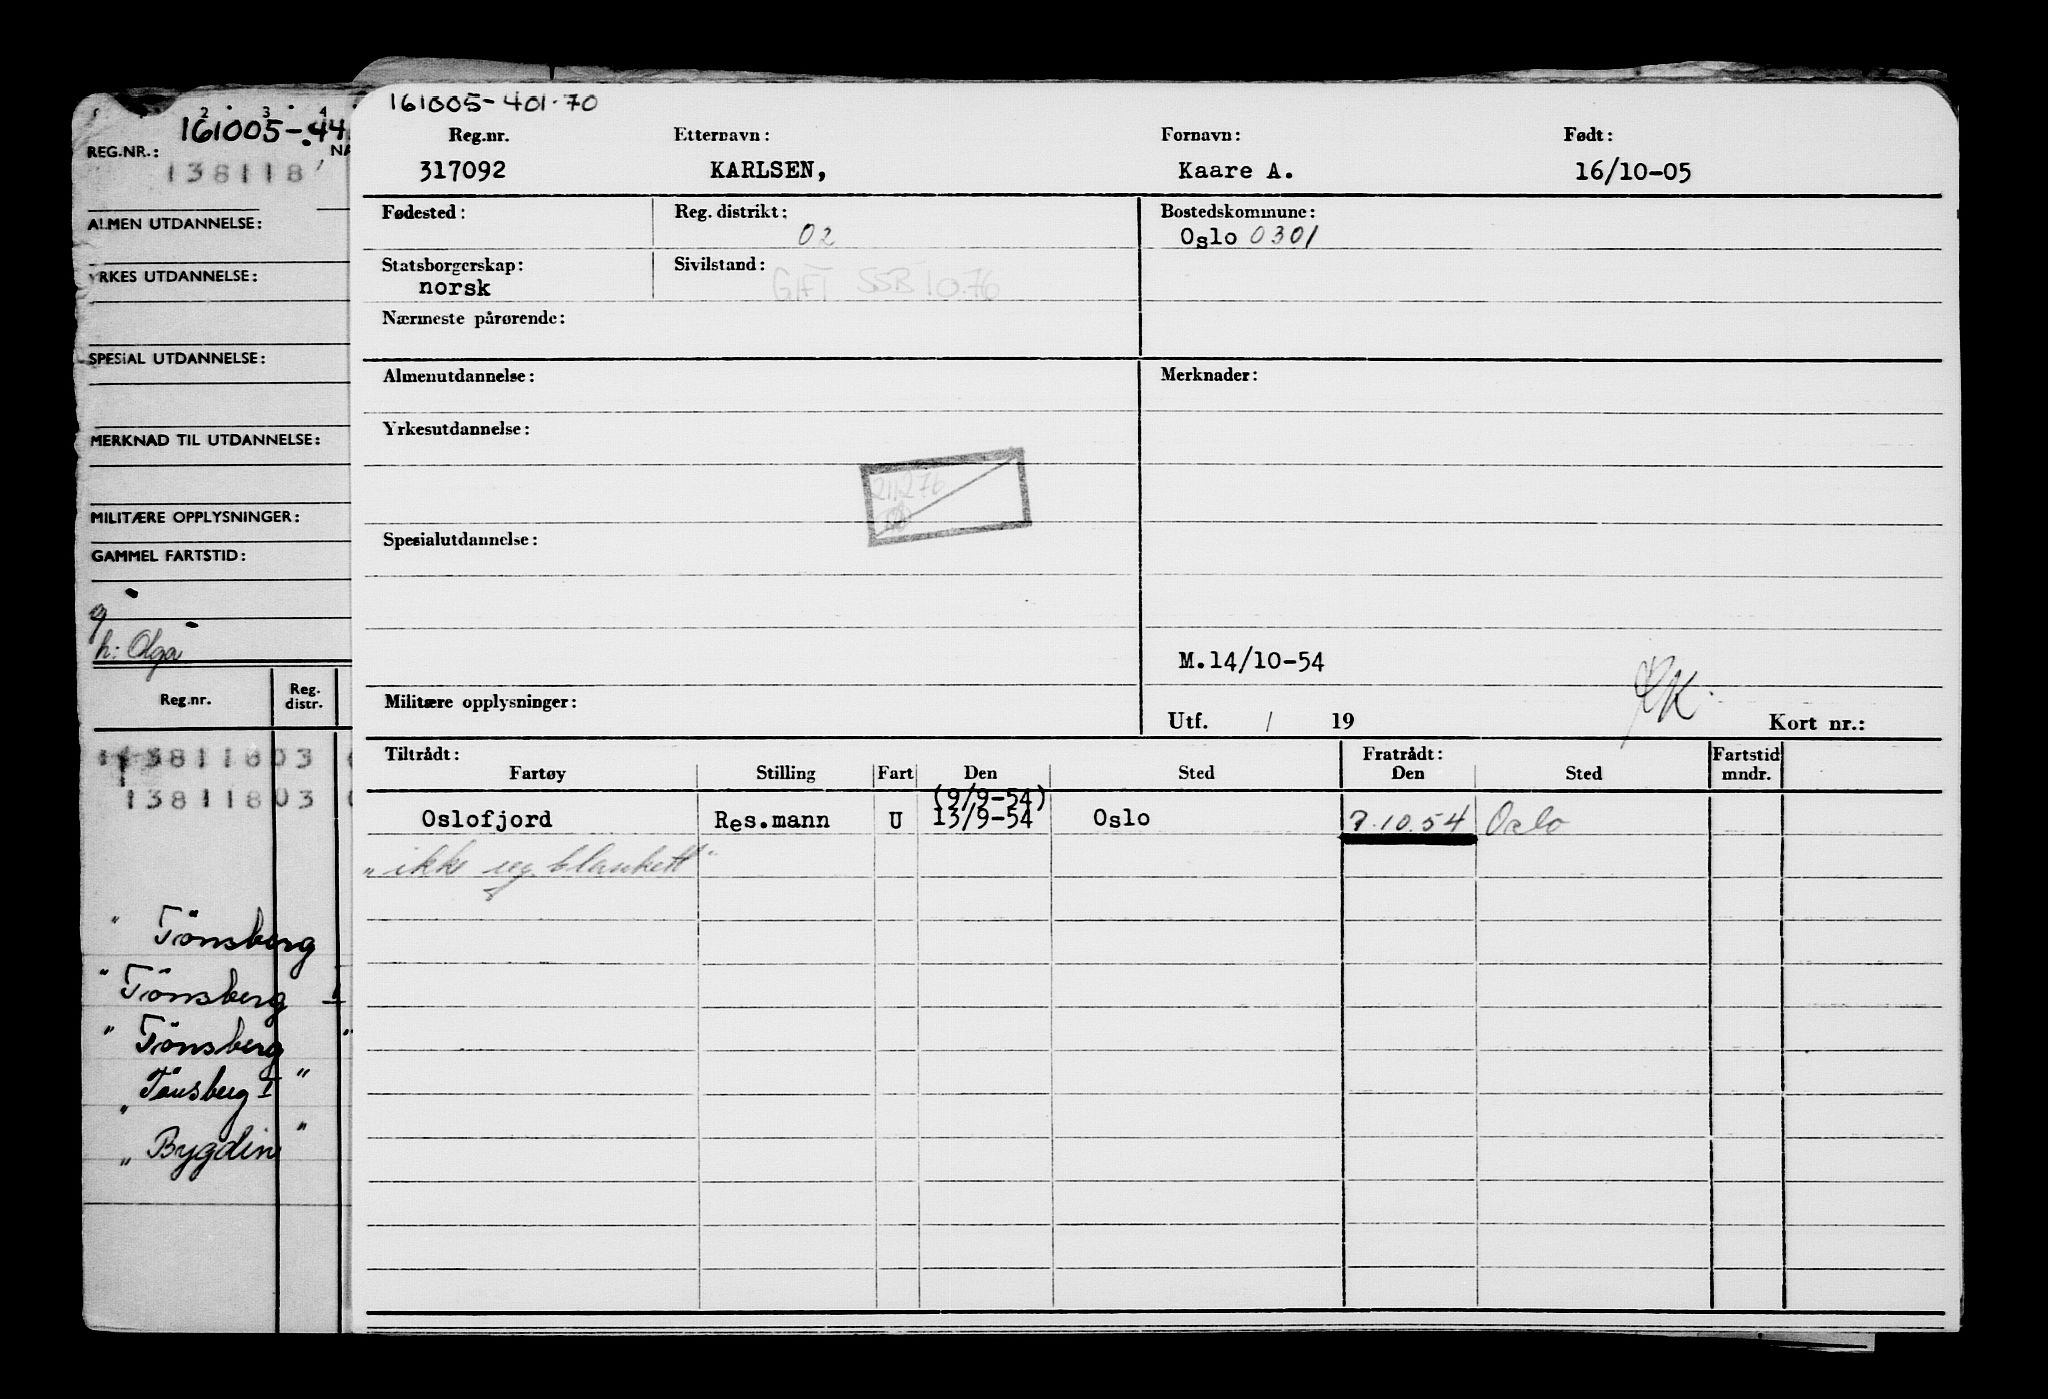 161005-44
REG.NR.: NA
138118
ALMEN UTDANNELSE:
YRKES UTDANNELSE:
SPESIAL UTDANNELSE:
MERKNAD TIL UTDANNELSE:
MILITÆRE OPPLYSNINGER:
GAMMEL FARTSTID:
h: Olga
Reg.nr. Reg. distr.
138118 03
138118 03
" Tönsberg
" Tönsberg I
" Tönsberg "
" Tönsberg I "
" Bygdin "
161005-401.70
Reg.nr. Etternavn: Fornavn: Født:
317092 KARLSEN, Kaare A. 16/10-05
Fødested: Reg. distrikt: Bostedskommune:
02 Oslo 0301
Statsborgerskap: Sivilstand:
norsk GIFT SSB 10.76
Nærmeste pårørende:
Almenutdannelse: Merknader:
Yrkesutdannelse:
Spesialutdannelse:
M.14/10-54
Militære opplysninger:
Utf. / 19 Kort nr.:
Tiltrådt: Fratrådt: Fartstid
Fartøy Stilling Fart Den Sted Den Sted mndr.
(9/9-54)
Oslofjord Res.mann U 13/9-54 Oslo 7.10.54 Oslo
"ikke blankett"